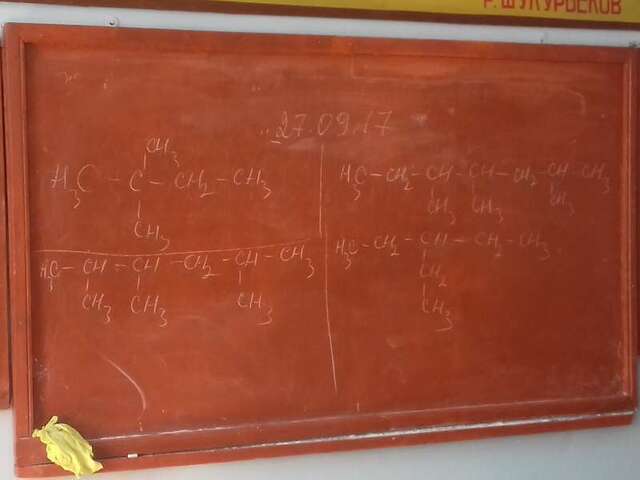 Г. ШУКУРБЕКОВ
27.09.17
CH₃
H₃C – C – CH₂ – CH₃
CH₃
H₃C – CH – CH – CH₂ – CH – CH₃
CH₃ CH₃ CH₃
H₃C – CH₂ – CH – CH – CH₂ – CH – CH₃
CH₃ CH₃ CH₃
H₃C – CH₂ – CH – CH₂ – CH₃
CH₂
CH₃